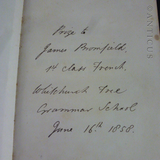 Prize to
James Bromfield,
1st class French,
Whitchurch Free
Grammar School
June 16th 1858.